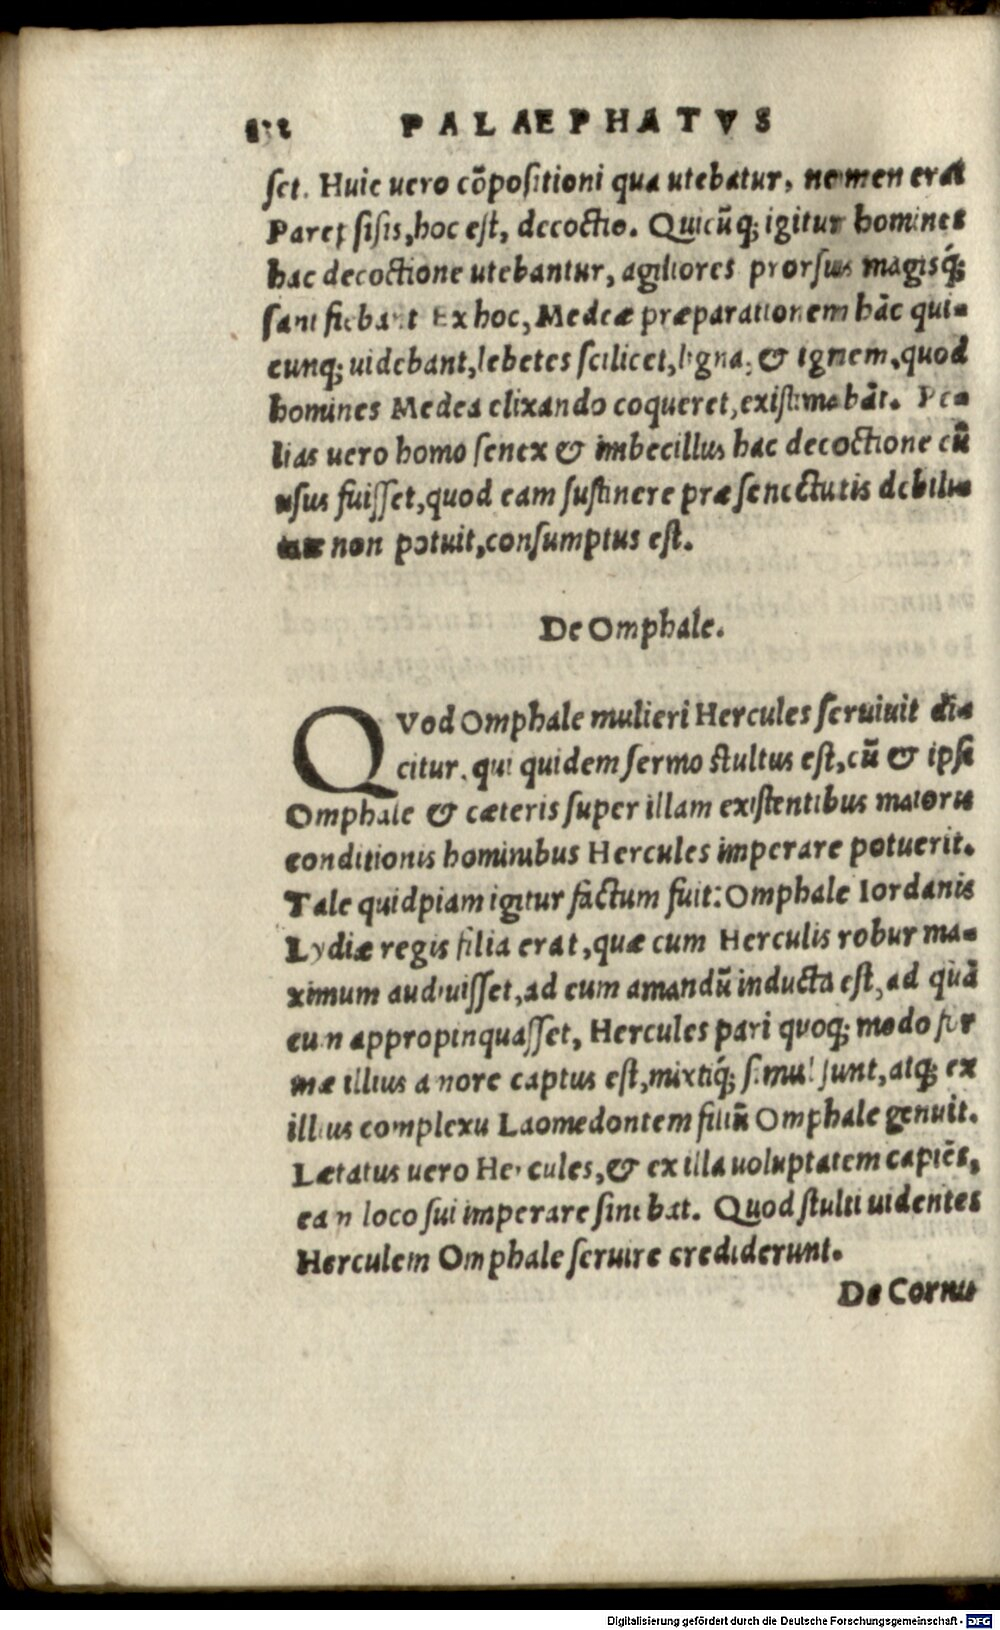 PALAEPHATVS
set. Huic uero cõpositioni qua utebatur, nomen erat
Parepsisis, hoc est, decoctio. Quicũq; igitur homines
hac decoctione utebantur, agiliores prorsus magisq́;
sani fiebant Ex hoc, Medeæ præparationem hãc qui-
cunq; uidebant, lebetes scilicet, ligna, & ignem, quod
homines Medea elixando coqueret, existimabãt. Pe-
lias uero homo senex & imbecillus hac decoctione cũ
usus fuisset, quod eam sustinere præ senectutis debili-
non potuit, consumptus est.
De Omphale.
QVod Omphale mulieri Hercules seruiuit di-
citur, qui quidem sermo stultus est, cũ & ipsi
Omphale & cæteris super illam existentibus maioris
conditionis hominibus Hercules imperare potuerit.
Tale quidpiam igitur factum fuit: Omphale Iordanis
Lydiæ regis filia erat, quæ cum Herculis robur ma-
ximum audiuisset, ad eum amandũ inducta est, ad quã
cum appropinquasset, Hercules pari quoq; modo for
mæ illius amore captus est, mixtiq́; simul sunt, atq; ex
illius complexu Laomedontem filiũ Omphale genuit.
Lætatus uero Hercules, & ex illa uoluptatem capiẽs,
eam loco sui imperare sinebat. Quod stulti uidentes
Herculem Omphale seruire crediderunt.
De Cornu
Digitalisierung gefördert durch die Deutsche Forschungsgemeinschaft - DFG